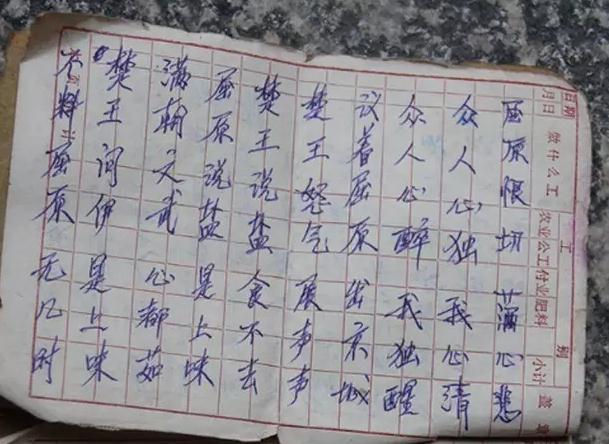 不料屈原 无几时
楚王问伊 是上味
满朝文武 心都茹
屈原说盐 是上味
楚王说盐 食不去
楚王怒气 声声
议着屈原 出京城
众人心醉 我独醒
众人心独 我心清
屈原恨切 心悲
日期 工 别
月日 做什么工 农业 公工 付业 肥料 小计